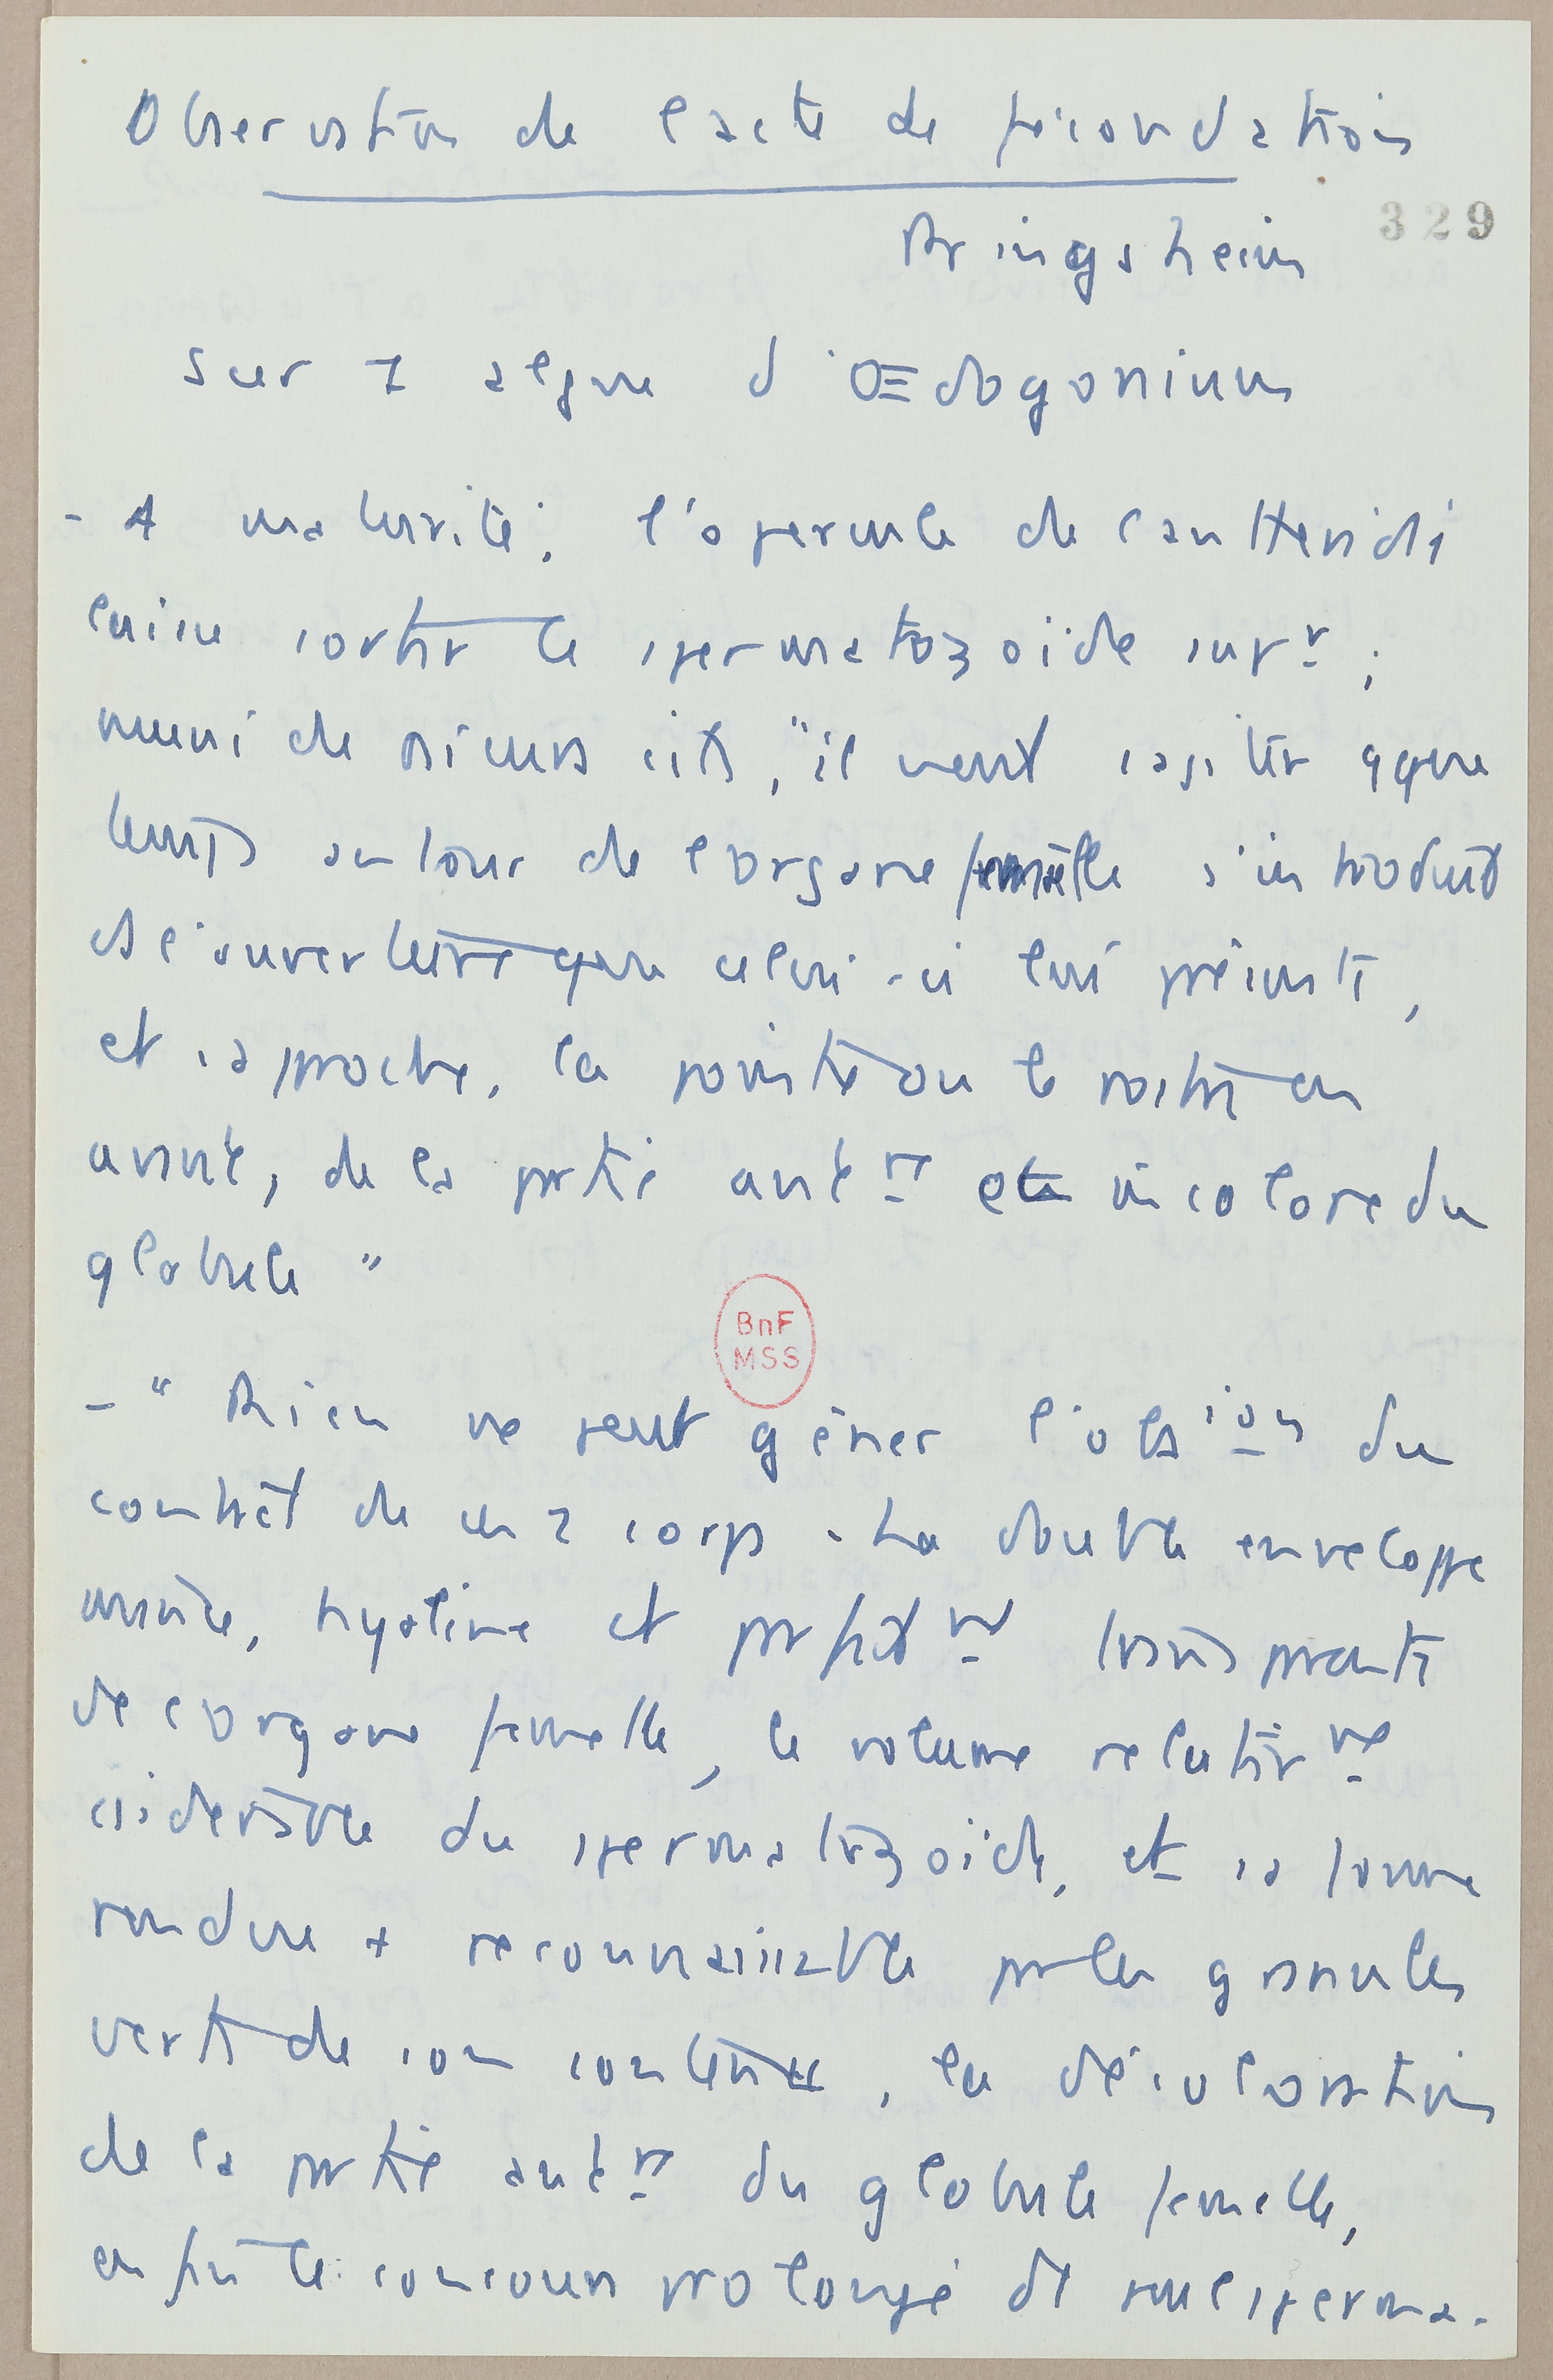 Observation de l'acte de fécondation
329
Pringsheim
sur 1 algue d'OEdogonium
- A maturité, l'opercule de l'anthéridi
laisse sortir le spermatozoïde supr ;
muni de cils, "il vient s'agiter qque
temps autour de l'organe femelle s'introduit
ds l'ouverture que celui-ci lui présente,
et s'approche, la pointe ou le rostre en
avant, de la partie antre et incolore du
globule "
BnF
MSS
- " Rien ne peut gêner l'obsion du
contact de ces 2 corps. La double enveloppe
mince, hyaline et parfaitmt transparente
de l'organe femelle, le volume relativmt
csidérable du spermatozoïde, et sa forme
rendue + reconnaissable par les granules
verts de son contenu, la décoloration
de la partie antre du globule femelle,
enfin le concours prolongé d'1 seul sperma-